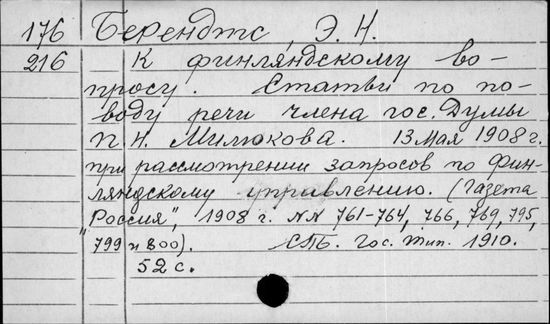 176 Берендтс, Э. Н.
216 К финляндскому во-
просу. Статьи по по-
воду речи члена гос. Думы
П. Н. Милюкова. 13 мая 1908 г.
при рассмотрении запросов по Фин-
ляндскому управлению. (Газета
"Россия", 1908 г. №№ 761-764, 766, 769, 795,
799 и 800). СПб. Гос. тип. 1910.
52 с.